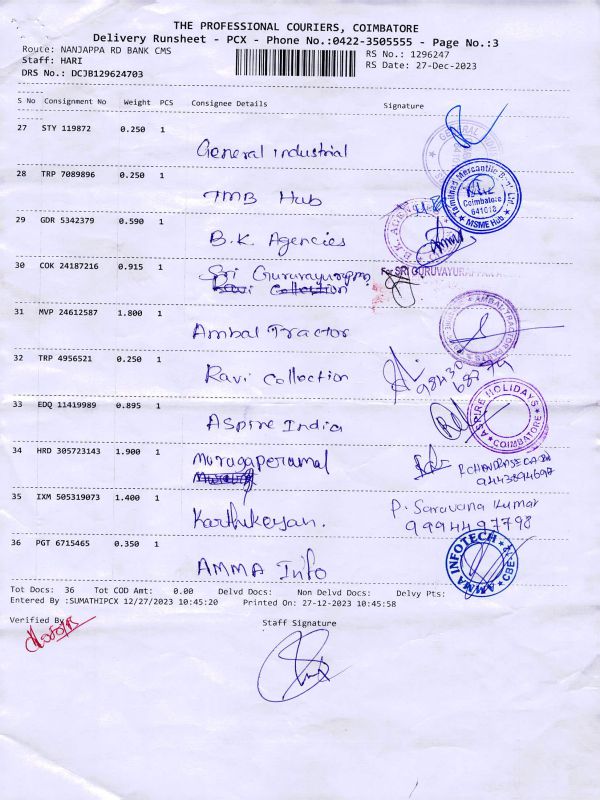 THE PROFESSIONAL COURIERS, COIMBATORE
Delivery Runsheet - PCX - Phone No.:0422-3505555 - Page No.:3
Route: NANJAPPA RD BANK CMS
RS No.: 1296247
Staff: HARI
RS Date: 27-Dec-2023
DRS No.: DCJB129624703
S No Consignment No Weight PCS Consignee Details Signature
27 STY 119872 0.250 1
General industrial
28 TRP 7089896 0.250 1
TMB Hub
Tamilnad Mercantile Bank Ltd.
Coimbatore
641018
MSME Hub
29 GDR 5342379 0.590 1
B.K. Agencies
B.K. AGENCIES
30 COK 24187216 0.915 1
Sri Guruvayurappan
Ravi Collection
For SRI GURUVAYURAPPAN
31 MVP 24612587 1.800 1
Ambal Tractor
AMBAL TRACTOR PARTS
32 TRP 4956521 0.250 1
Ravi Collection
98430
68774
33 EDQ 11419989 0.895 1
Aspire India
ASPIRE HOLIDAYS
COIMBATORE
34 HRD 305723143 1.900 1
Murugaperumal
R CHANDRASECARN
9443894697
35 IXM 505319073 1.400 1
Karthikeyan.
P. Saravana Kumar
9994497798
36 PGT 6715465 0.350 1
AMMA Info
AMMA INFOTECH
CBE
Tot Docs: 36 Tot COD Amt: 0.00 Delvd Docs: Non Delvd Docs: Delvy Pts:
Entered By :SUMATHIPCX 12/27/2023 10:45:20 Printed On: 27-12-2023 10:45:58
Verified By
Staff Signature